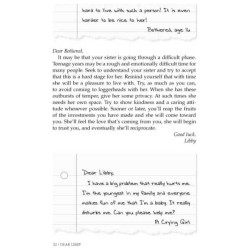 hard to live with such a person! It is even
harder to be nice to her!
Bothered, age 16
Dear Bothered,
It may be that your sister is going through a difficult phase.
Teenage years may be a rough and emotionally difficult time for
many people. Seek to understand your sister and try to accept
that this is a hard stage for her. Remind yourself that with time
she will be a pleasure to live with. Try, as much as you can,
to avoid coming to loggerheads with her. When she has these
outbursts of temper, give her some privacy. At such times she
needs her own space. Try to show kindness and a caring atti-
tude whenever possible. Sooner or later, you'll reap the fruits
of the investments you have made and she will come toward
you. She'll feel the love that's coming from you, she will begin
to trust you, and eventually she'll reciprocate.
Good luck,
Libby
Dear Libby,
I have a big problem that really hurts me.
I'm the youngest in my family and everyone
makes fun of me that I'm a baby. It really
disturbs me. Can you please help me?
A Crying Girl
/ DEAR LIBBY